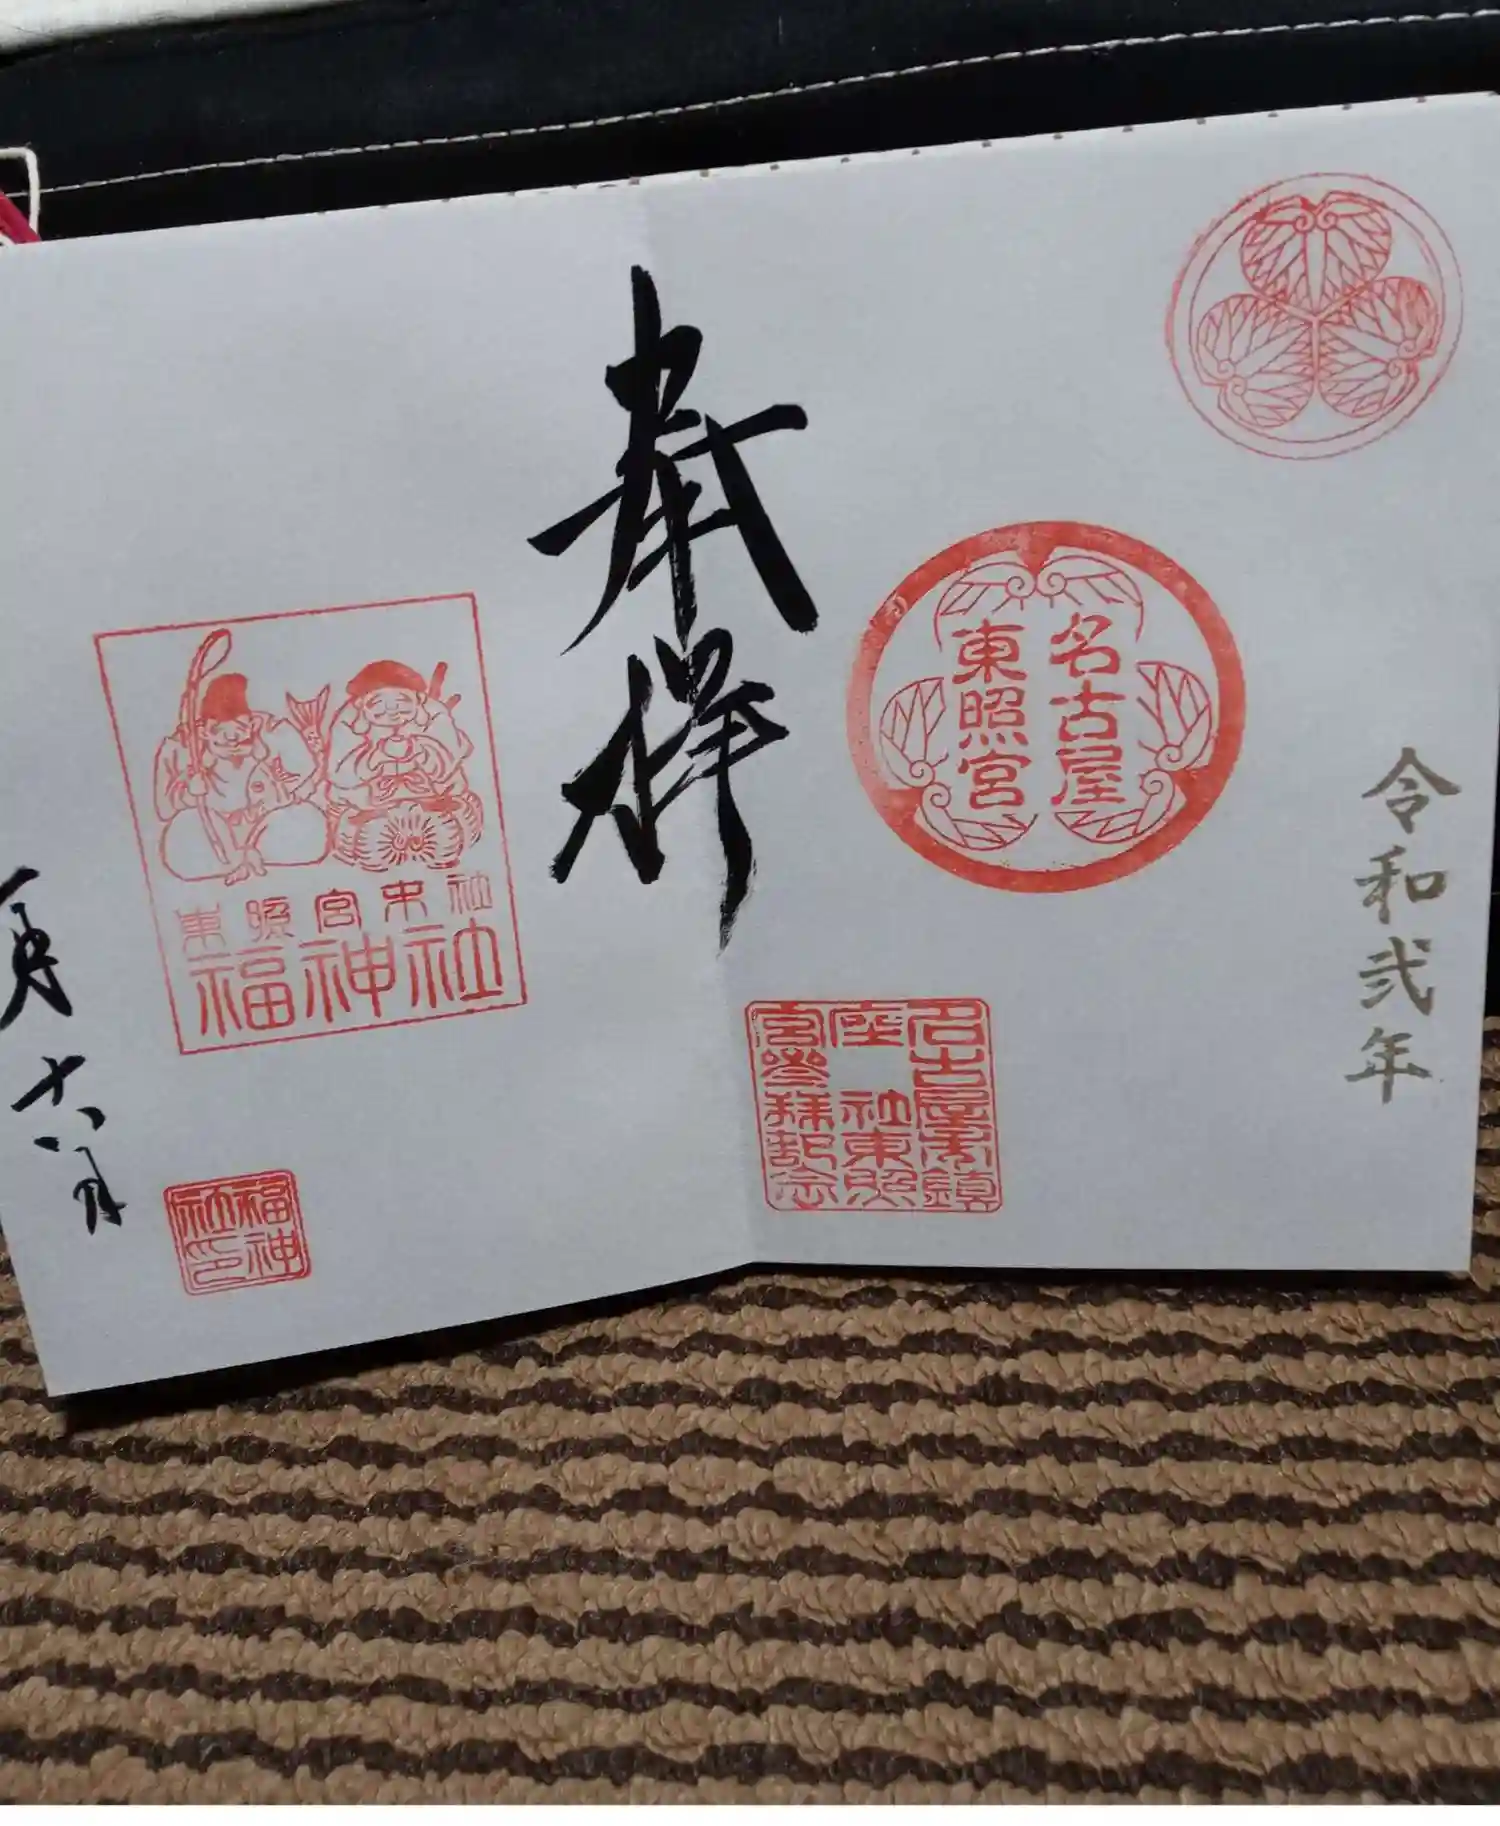 令和弐年
名古屋
東照宮
名古屋市鎮
座 社東照
宮参拝記念
奉拝
東照宮末社
福神社
福神
社印
十八日